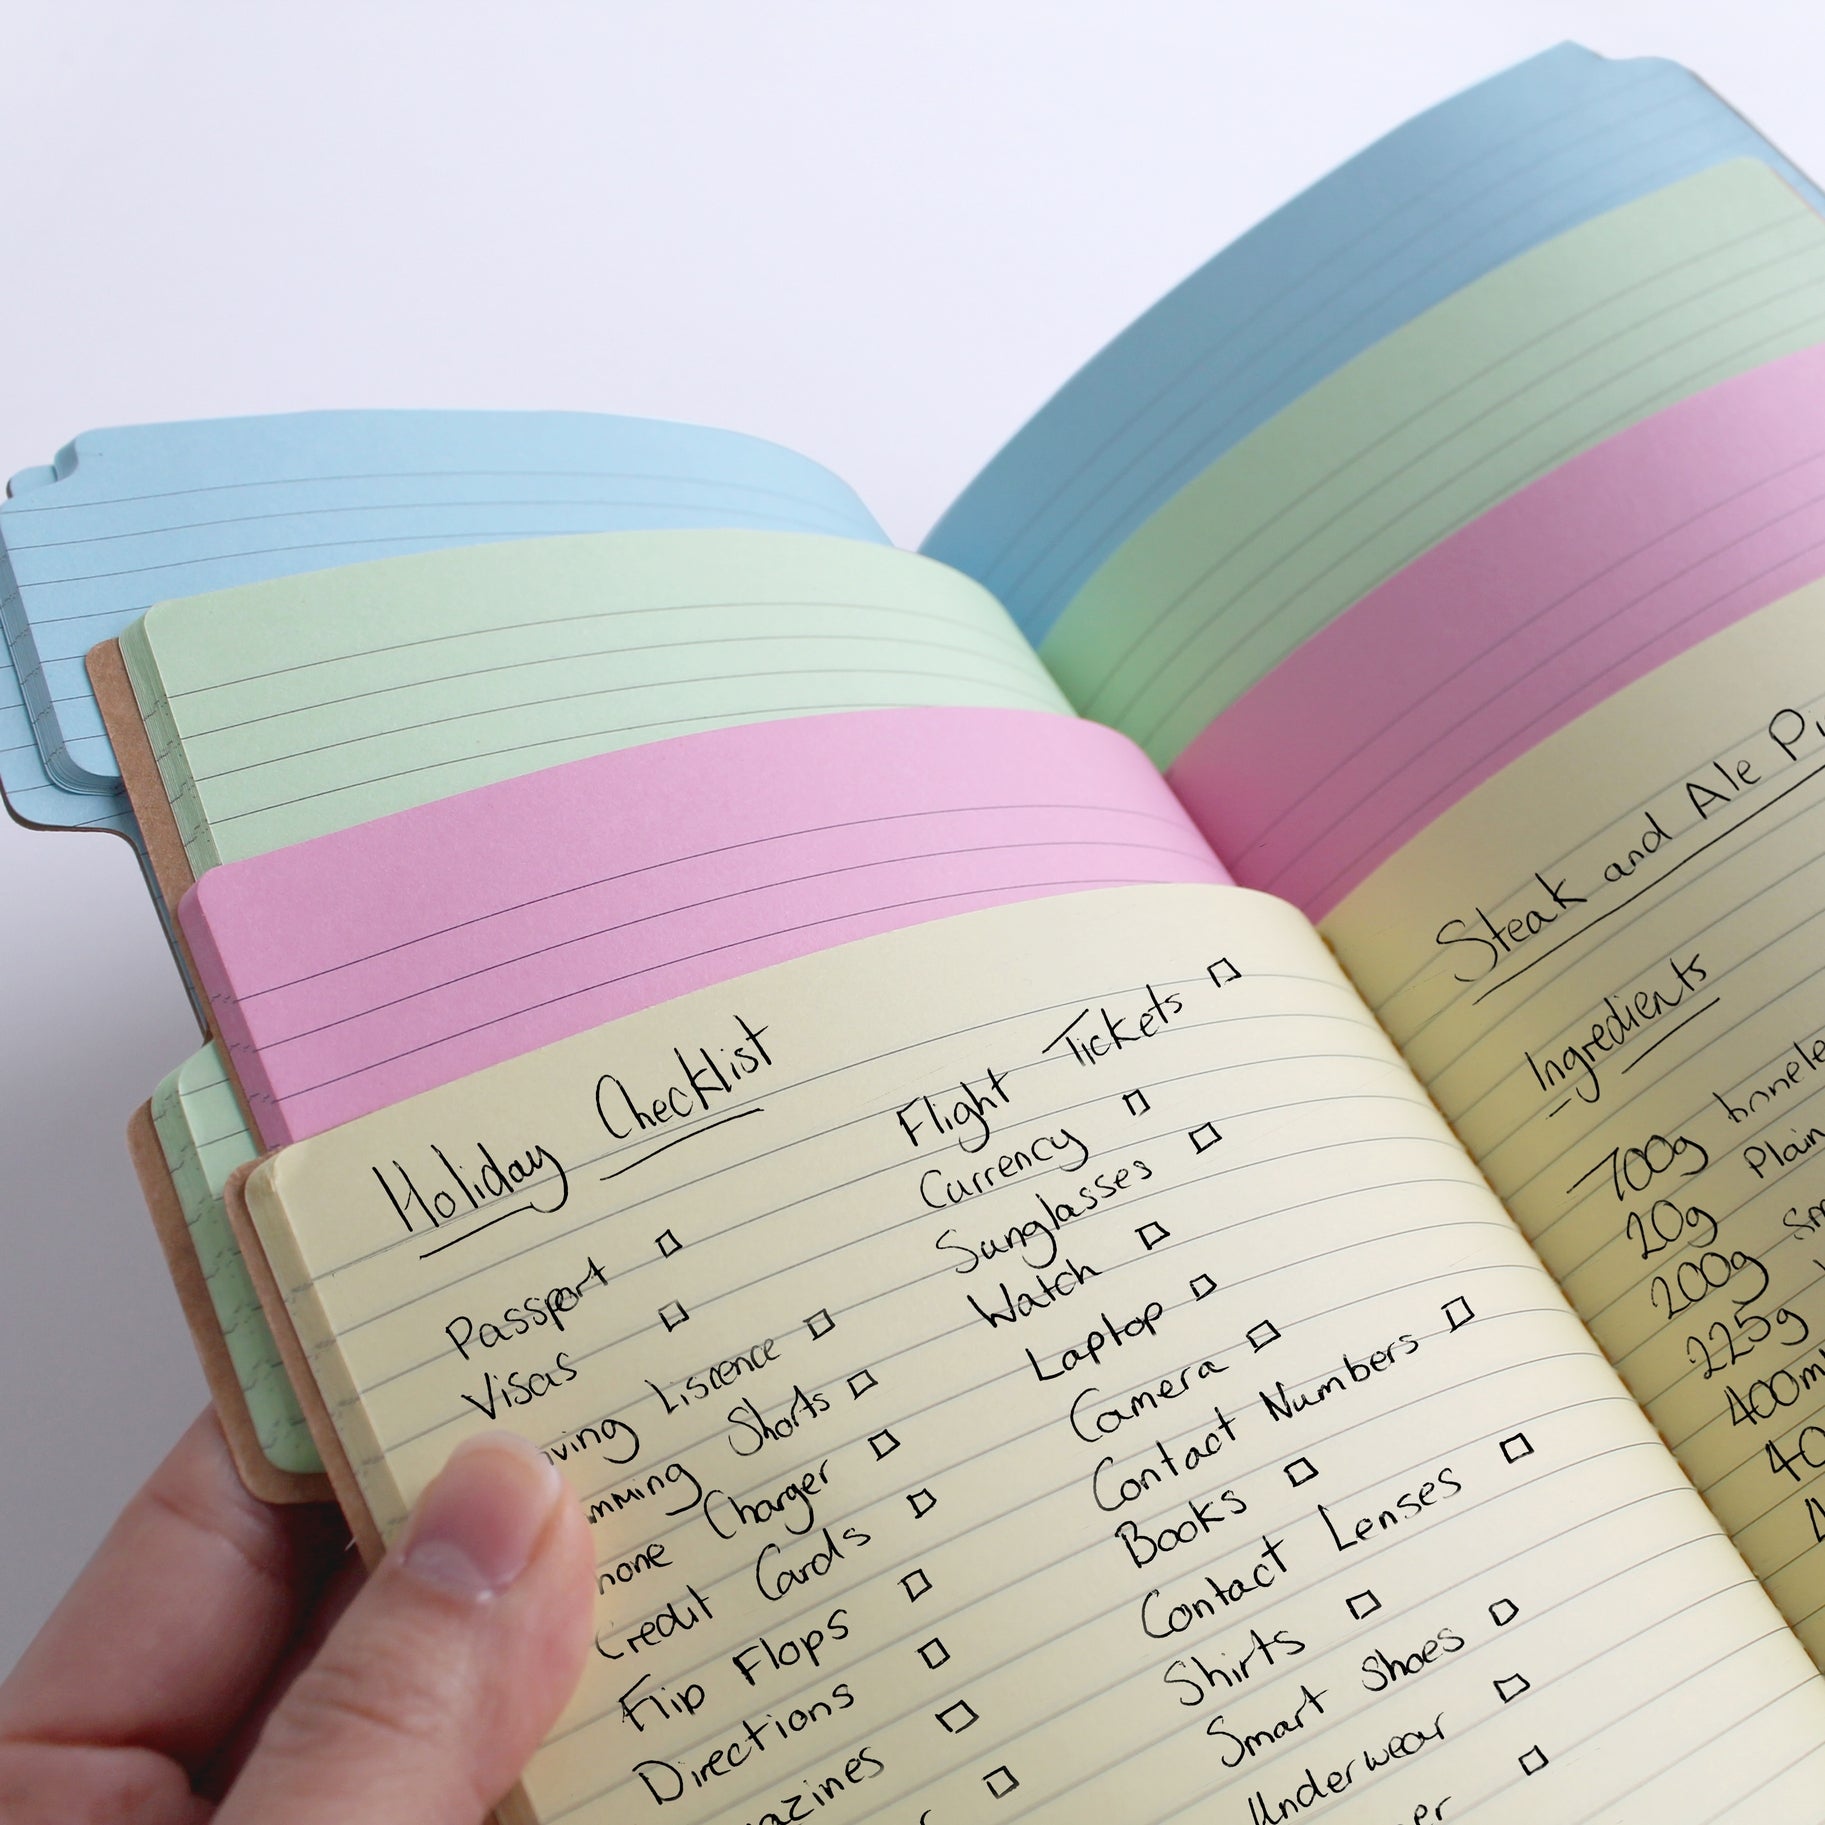 Holiday Checklist
Passport
Visas
iving Liscence
mming Shorts
hone Charger
Credit Cards
Flip Flops
Directions
azines
Flight Tickets
Currency
Sunglasses
Watch
Laptop
Camera
Contact Numbers
Books
Contact Lenses
Shirts
Smart Shoes
Underwear
er
Steak and Ale Pi
Ingredients
700g
20g Plain
200g
225g
400m
40